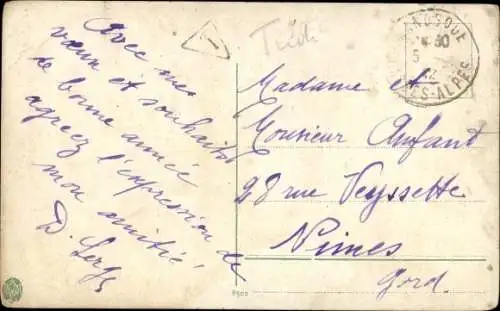 Avec mes
vœux et souhaits
de bonne année
agréez l'expression de
mon amitié,
T
Madame &
Monsieur Anfant
28 rue Veyssette
Nimes
Gard.
30
5
ES-ALPES